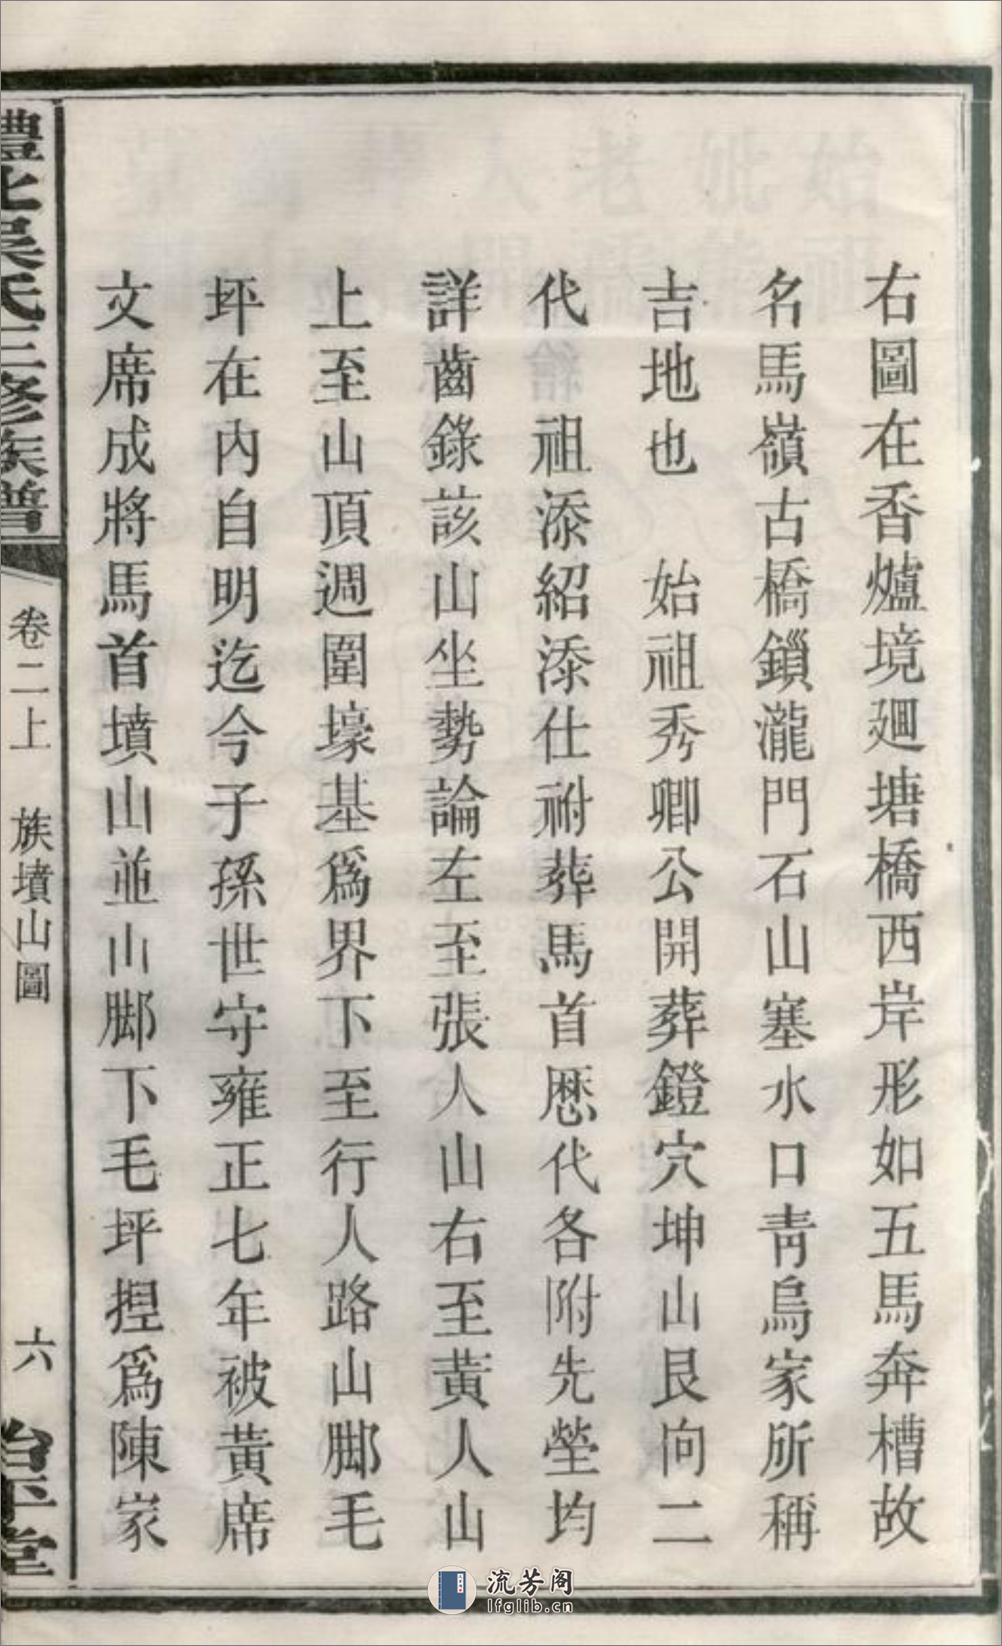 右圖在香爐境廻塘橋西岸形如五馬奔槽故
名馬嶺古橋鎖瀧門石山塞水口靑烏家所稱
吉地也　始祖秀卿公開葬鐙穴坤山艮向二
代　祖添紹添仕祔葬馬首歷代各附先塋均
詳齒錄該山坐勢論左至張人山右至黃人山
上至山頂週圍壕基爲界下至行人路山脚毛
坪在內自明迄今子孫世守雍正七年被黃席
文席成將馬首墳山並山脚下毛坪揑爲陳家
吳氏三修族譜
卷二上　族墳山圖
六
治平堂
流芳阁
lfglib.cn